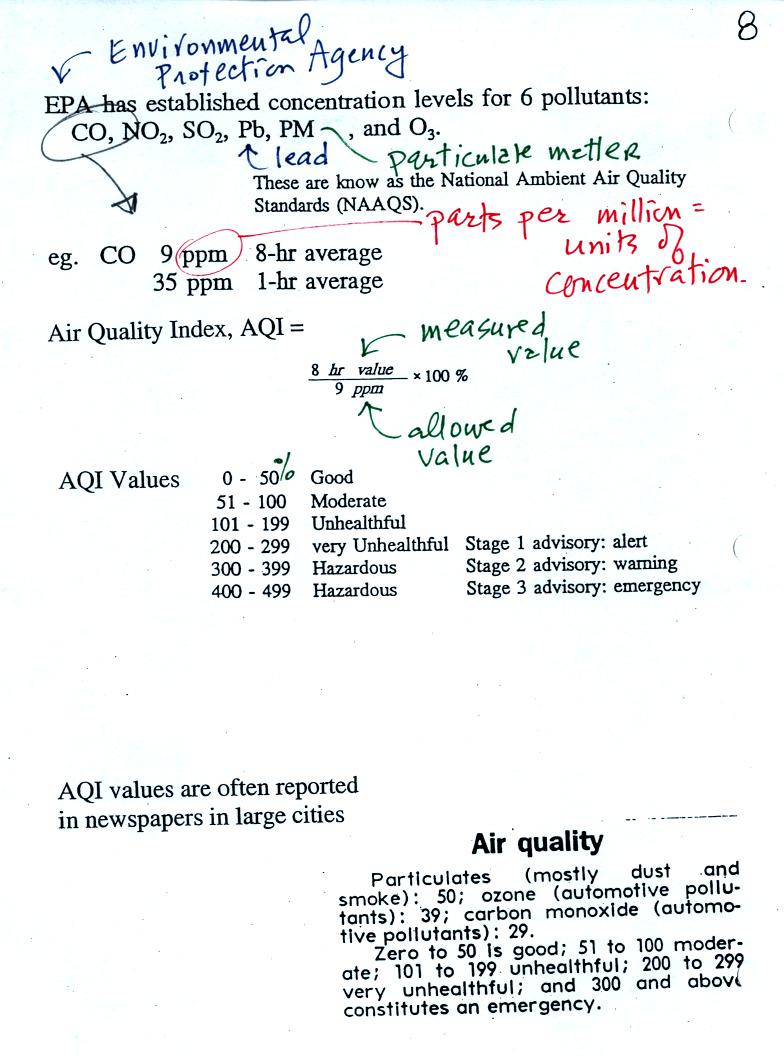 8
Environmental
Protection Agency
EPA has established concentration levels for 6 pollutants:
CO, NO₂, SO₂, Pb, PM , and O₃.
lead particulate matter
These are know as the National Ambient Air Quality
Standards (NAAQS).
parts per million =
units of
concentration.
eg. CO 9 ppm 8-hr average
35 ppm 1-hr average
Air Quality Index, AQI =
measured
value
8 hr value
9 ppm
× 100 %
allowed
value
AQI Values 0 - 50% Good
51 - 100 Moderate
101 - 199 Unhealthful
200 - 299 very Unhealthful Stage 1 advisory: alert
300 - 399 Hazardous Stage 2 advisory: warning
400 - 499 Hazardous Stage 3 advisory: emergency
AQI values are often reported
in newspapers in large cities
Air quality
Particulates (mostly dust and
smoke): 50; ozone (automotive pollu-
tants): 39; carbon monoxide (automo-
tive pollutants): 29.
Zero to 50 is good; 51 to 100 moder-
ate; 101 to 199 unhealthful; 200 to 299
very unhealthful; and 300 and above
constitutes an emergency.